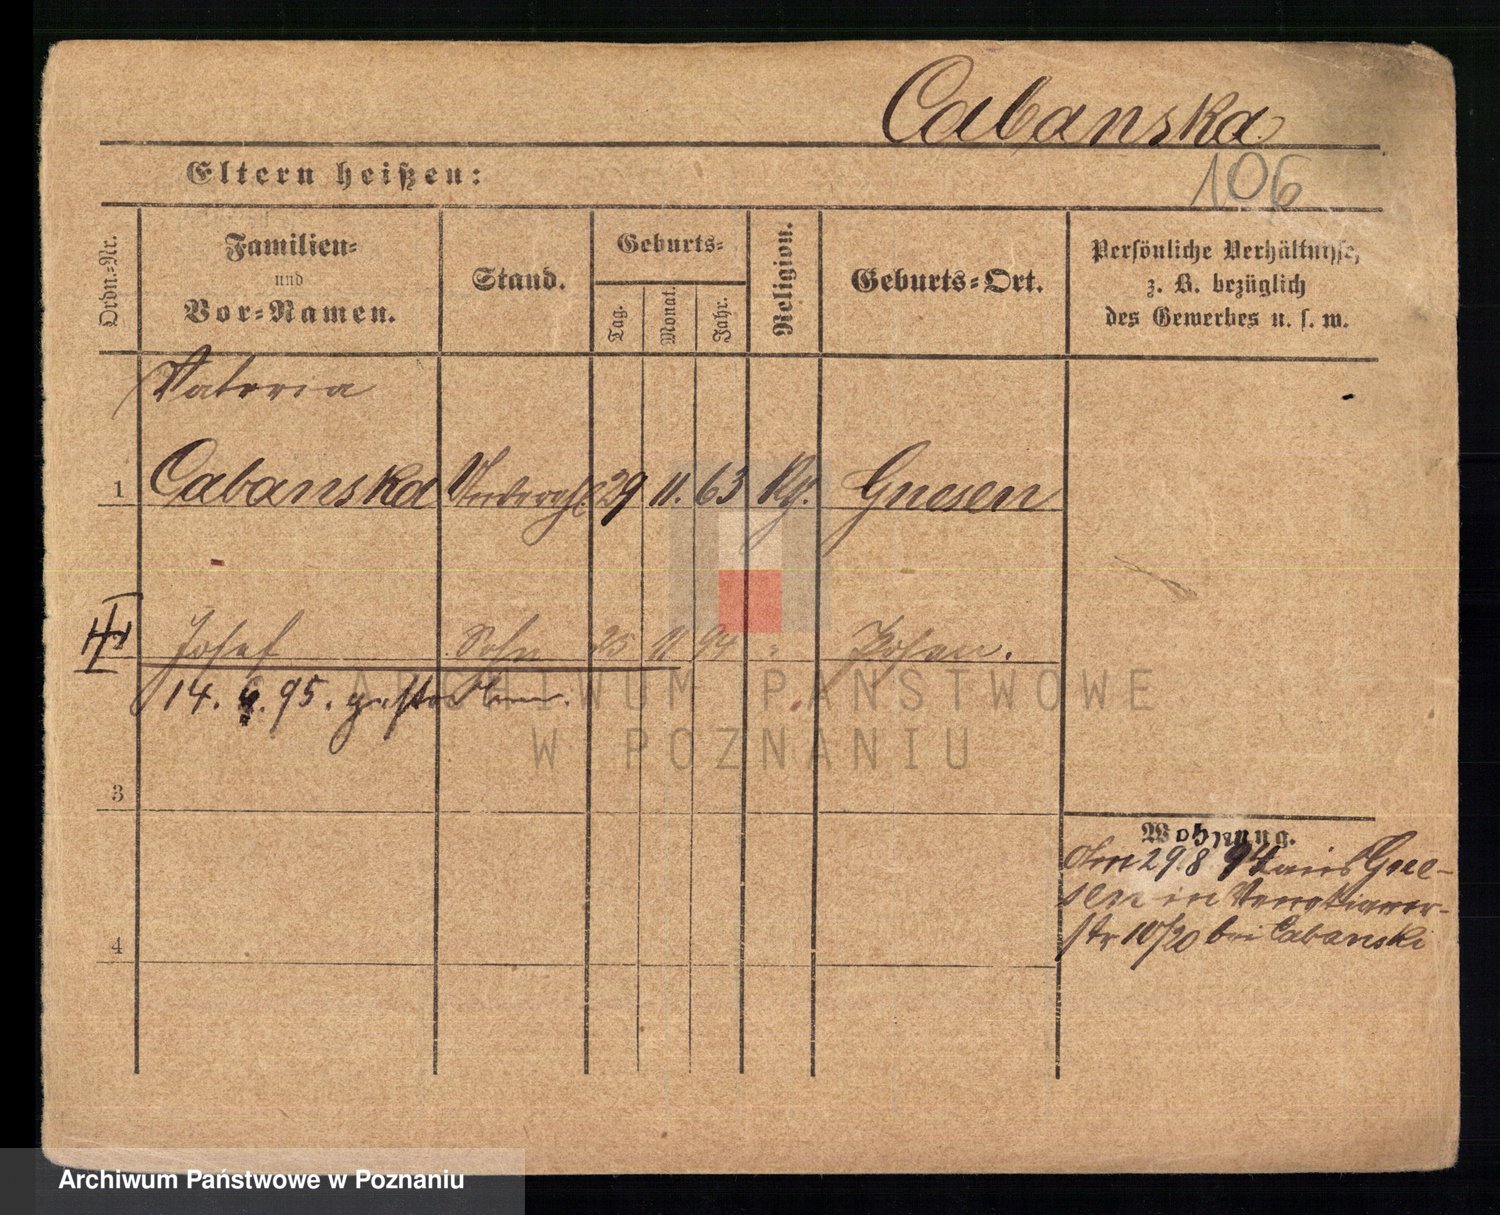 Cabanska
106
Eltern heißen:
Ordn.-Nr.
Familien-
und
Vor-Namen.
Stand.
Geburts-
Tag.
Monat.
Jahr.
Religion.
Geburts-Ort.
Persönliche Verhältnisse,
z. B. bezüglich
des Gewerbes u. s. w.
Valeria
1 Cabanska 29 11. 63 Kg. Gnesen
Josef Sohn 25 11 94 " Posen.
14. 6. 95. gestorben.
ARCHIWUM PAŃSTWOWE
W POZNANIU
3
Wohnung.
Am 29.8 94 aus Gne-
sen in Venetianer-
str 10/20 bei Cabanski
4
Archiwum Państwowe w Poznaniu